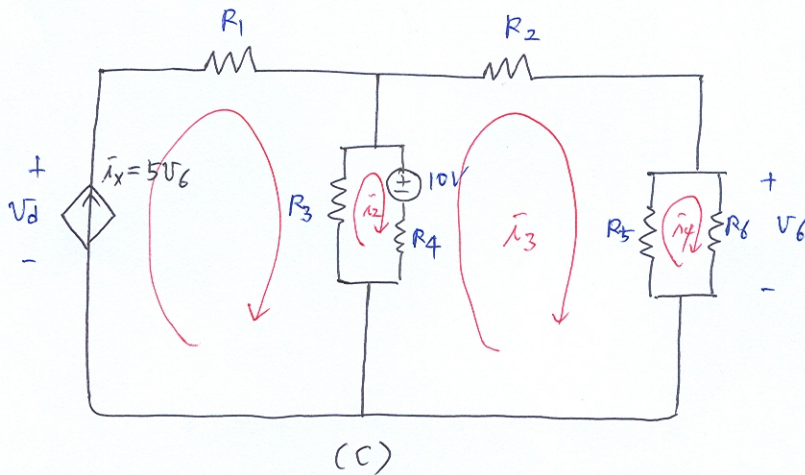 R1
R2
+
ix = 5v6
Vd
-
R3
i2
±
10V
R4
i3
R5
i4
R6
+
V6
-
(C)